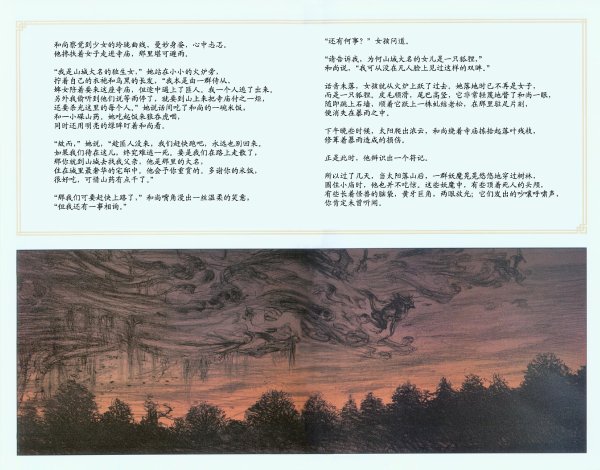 和尚察觉到少女的玲珑曲线、曼妙身姿，心中忐忑，
他搀扶着女子走进寺庙，那里堪可避雨。
“我是山城大名的独生女。”她站在小小的火炉旁，
拧着自己的衣袍和乌黑的长发，“我本是由一群侍从、
婢女陪着要来这座寺庙，但途中遇上了匪人，我一个人逃了出来。
另外我偷听到他们说等雨停了，就要到山上来把寺庙付之一炬，
还要杀光这里的每个人。”她说话间吃了和尚的一碗米饭，
和一小碟山药，她吃起饭来狼吞虎咽，
同时还用明亮的绿眸盯着和尚看。
“故而，”她说，“趁匪人没来，我们赶快跑吧，永远也别回来。
如果我们待在这儿，终究难逃一死，要是我们在路上走散了，
那你就到山城去找我父亲，他是那里的大名，
住在城里最奢华的宅邸中，他会予你重赏的。多谢你的米饭，
很好吃，可惜山药有点干了。”
“那我们可要赶快上路了，”和尚嘴角浸出一丝温柔的笑意，
“但我还有一事相询。”
“还有何事？”女孩问道。
“请告诉我，为何山城大名的女儿是一只狐狸，”
和尚说，“我可从没在凡人脸上见过这样的双眸。”
话音未落，女孩就从火炉上跃了过去，她落地时已不再是女子，
而是一只狐狸，皮毛顺滑，尾巴高竖，它非常轻蔑地瞥了和尚一眼，
随即跳上石墙，顺着它跃上一株虬结老松，在那里驻足片刻，
便消失在暴雨之中。
下午晚些时候，太阳爬出浓云，和尚绕着寺庙拣拾起落叶残枝，
修葺着暴雨造成的损伤。
正是此时，他辨识出一个符记。
所以过了几天，当太阳落山后，一群妖魔晃晃悠悠地穿过树林，
围住小庙时，他也并不吃惊。这些妖魔中，有些顶着死人的头颅，
有些长着怪兽的脑袋，黄牙巨角，两眼放光；它们发出的吵嚷呼啸声，
你肯定未曾听闻。